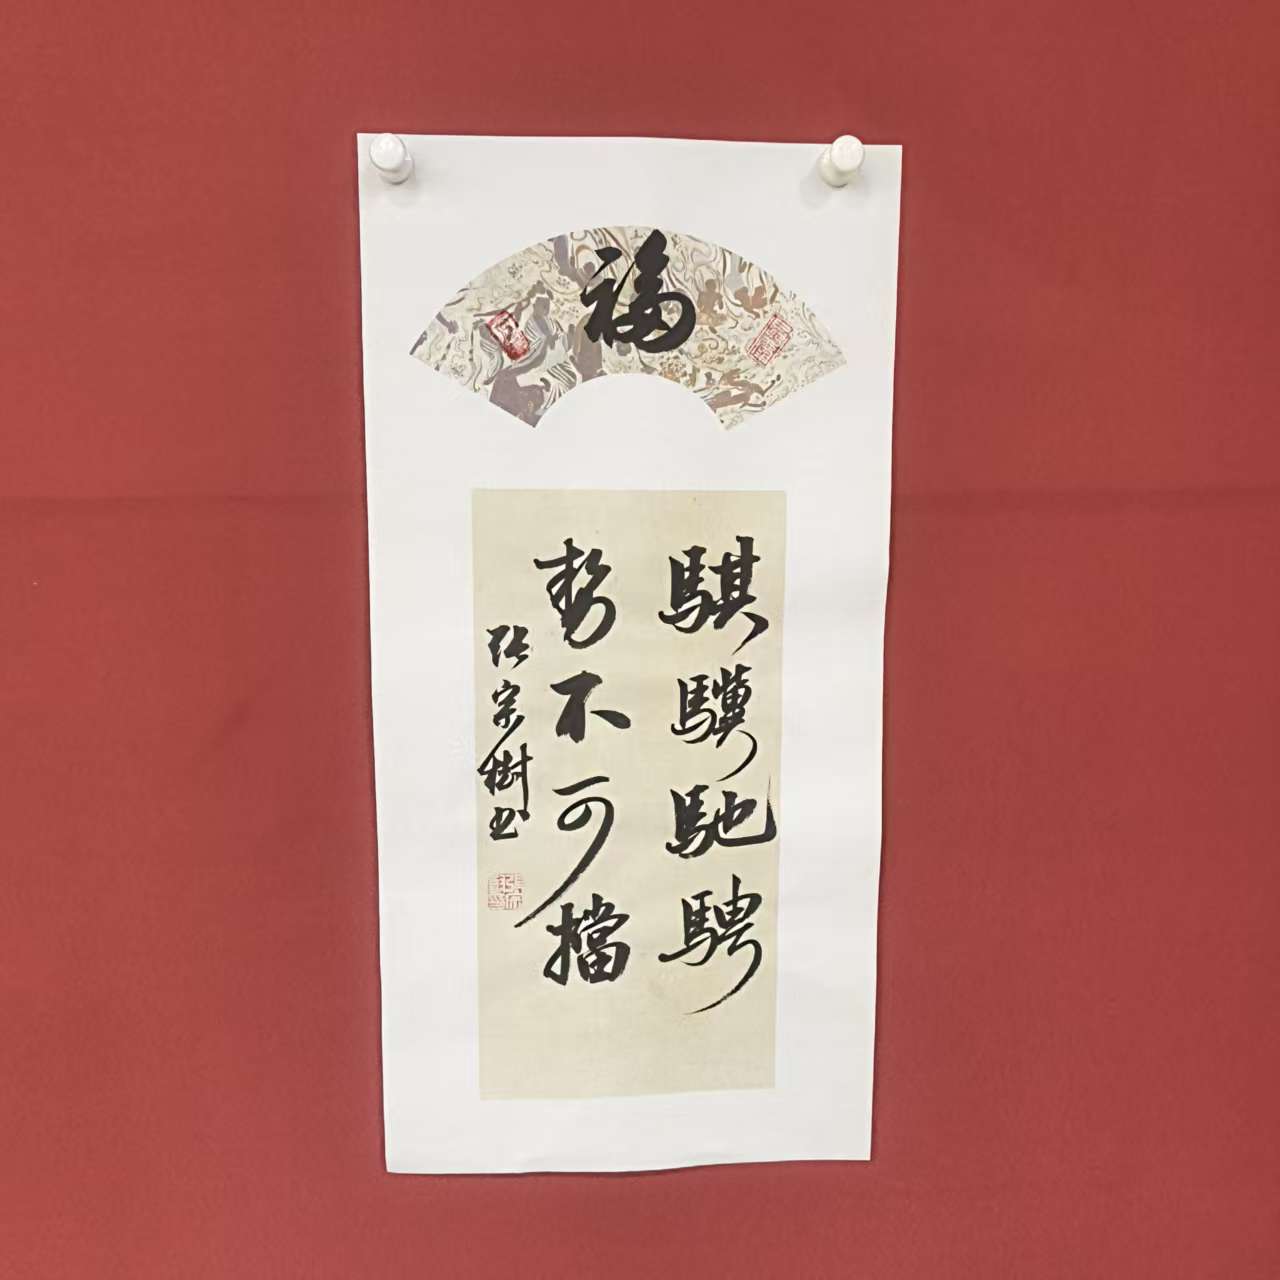 福
騏驥馳騁
勢不可擋
張宗樹书